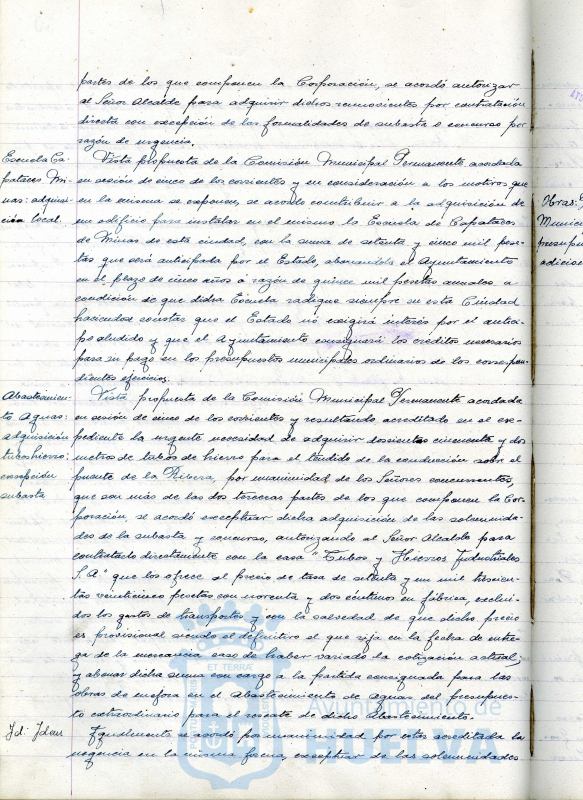 partes de los que componen la Corporación, se acordó autorizar
al Señor Alcalde para adquirir dichos por contratación
directa con excepción de las formalidades de subasta o concurso por
razón de urgencia.
Escuela Ca-
pataces Mi-
nas: adquisi-
ción local.
Vista propuesta de la Comisión Municipal Permanente acordada
en sesión de cinco de los corrientes y en consideración a los motivos que
en la misma se exponen, se acordó contribuir a la adquisición de
un edificio para instalar en el mismo la Escuela de Capataces
de Minas de esta ciudad, con la suma de setenta y cinco mil pese-
tas que será anticipada por el Estado, abonandola el Ayuntamiento
en el plazo de cinco años a razón de quince mil pesetas anuales a
condición de que dicha Escuela radique siempre en esta Ciudad
haciendose constar que el Estado no exigirá interés por el antici-
po aludido y que el Ayuntamiento consignará los créditos necesarios
para su pago en los presupuestos municipales ordinarios de los correspon-
dientes ejercicios.
Abastecimien-
to Aguas:
adquisición
tubos hierro:
excepción
subasta
Vista propuesta de la Comisión Municipal Permanente acordada
en sesión de cinco de los corrientes y resultando acreditado en el ex-
pediente la urgente necesidad de adquirir doscientos cincuenta y dos
metros de tubos de hierro para el tendido de la conducción sobre el
puente de la Ribera, por unanimidad de los Señores concurrentes,
que son más de las dos terceras partes de los que componen la Cor-
poración, se acordó exceptuar dicha adquisición de las solemnida-
des de la subasta y concurso, autorizando al Señor Alcalde para
contratarlo directamente con la casa "Tubos y Hierros Industriales
S.A" que los ofrece al precio de tasa de setenta y un mil trescien-
tas veinticinco pesetas con noventa y dos céntimos en fábrica, exclui-
dos los gastos de transportes y con la salvedad de que dicho precio
es provisional siendo el definitivo el que rija en la fecha de entre-
ga de la mercancia caso de haber variado la cotización actual;
y abonar dicha suma con cargo a la partida consignada para las
obras de mejora en el abastecimiento de aguas del presupues-
to extraordinario para el rescate de dicho Abastecimiento.
Id: Idem
Igualmente se acordó por unanimidad por estar acreditada la
urgencia en la misma forma, exceptuar de las solemnidades
Obras:
Munici
presupu
adicio
ET TERRA
Ayuntamiento de
HUELVA